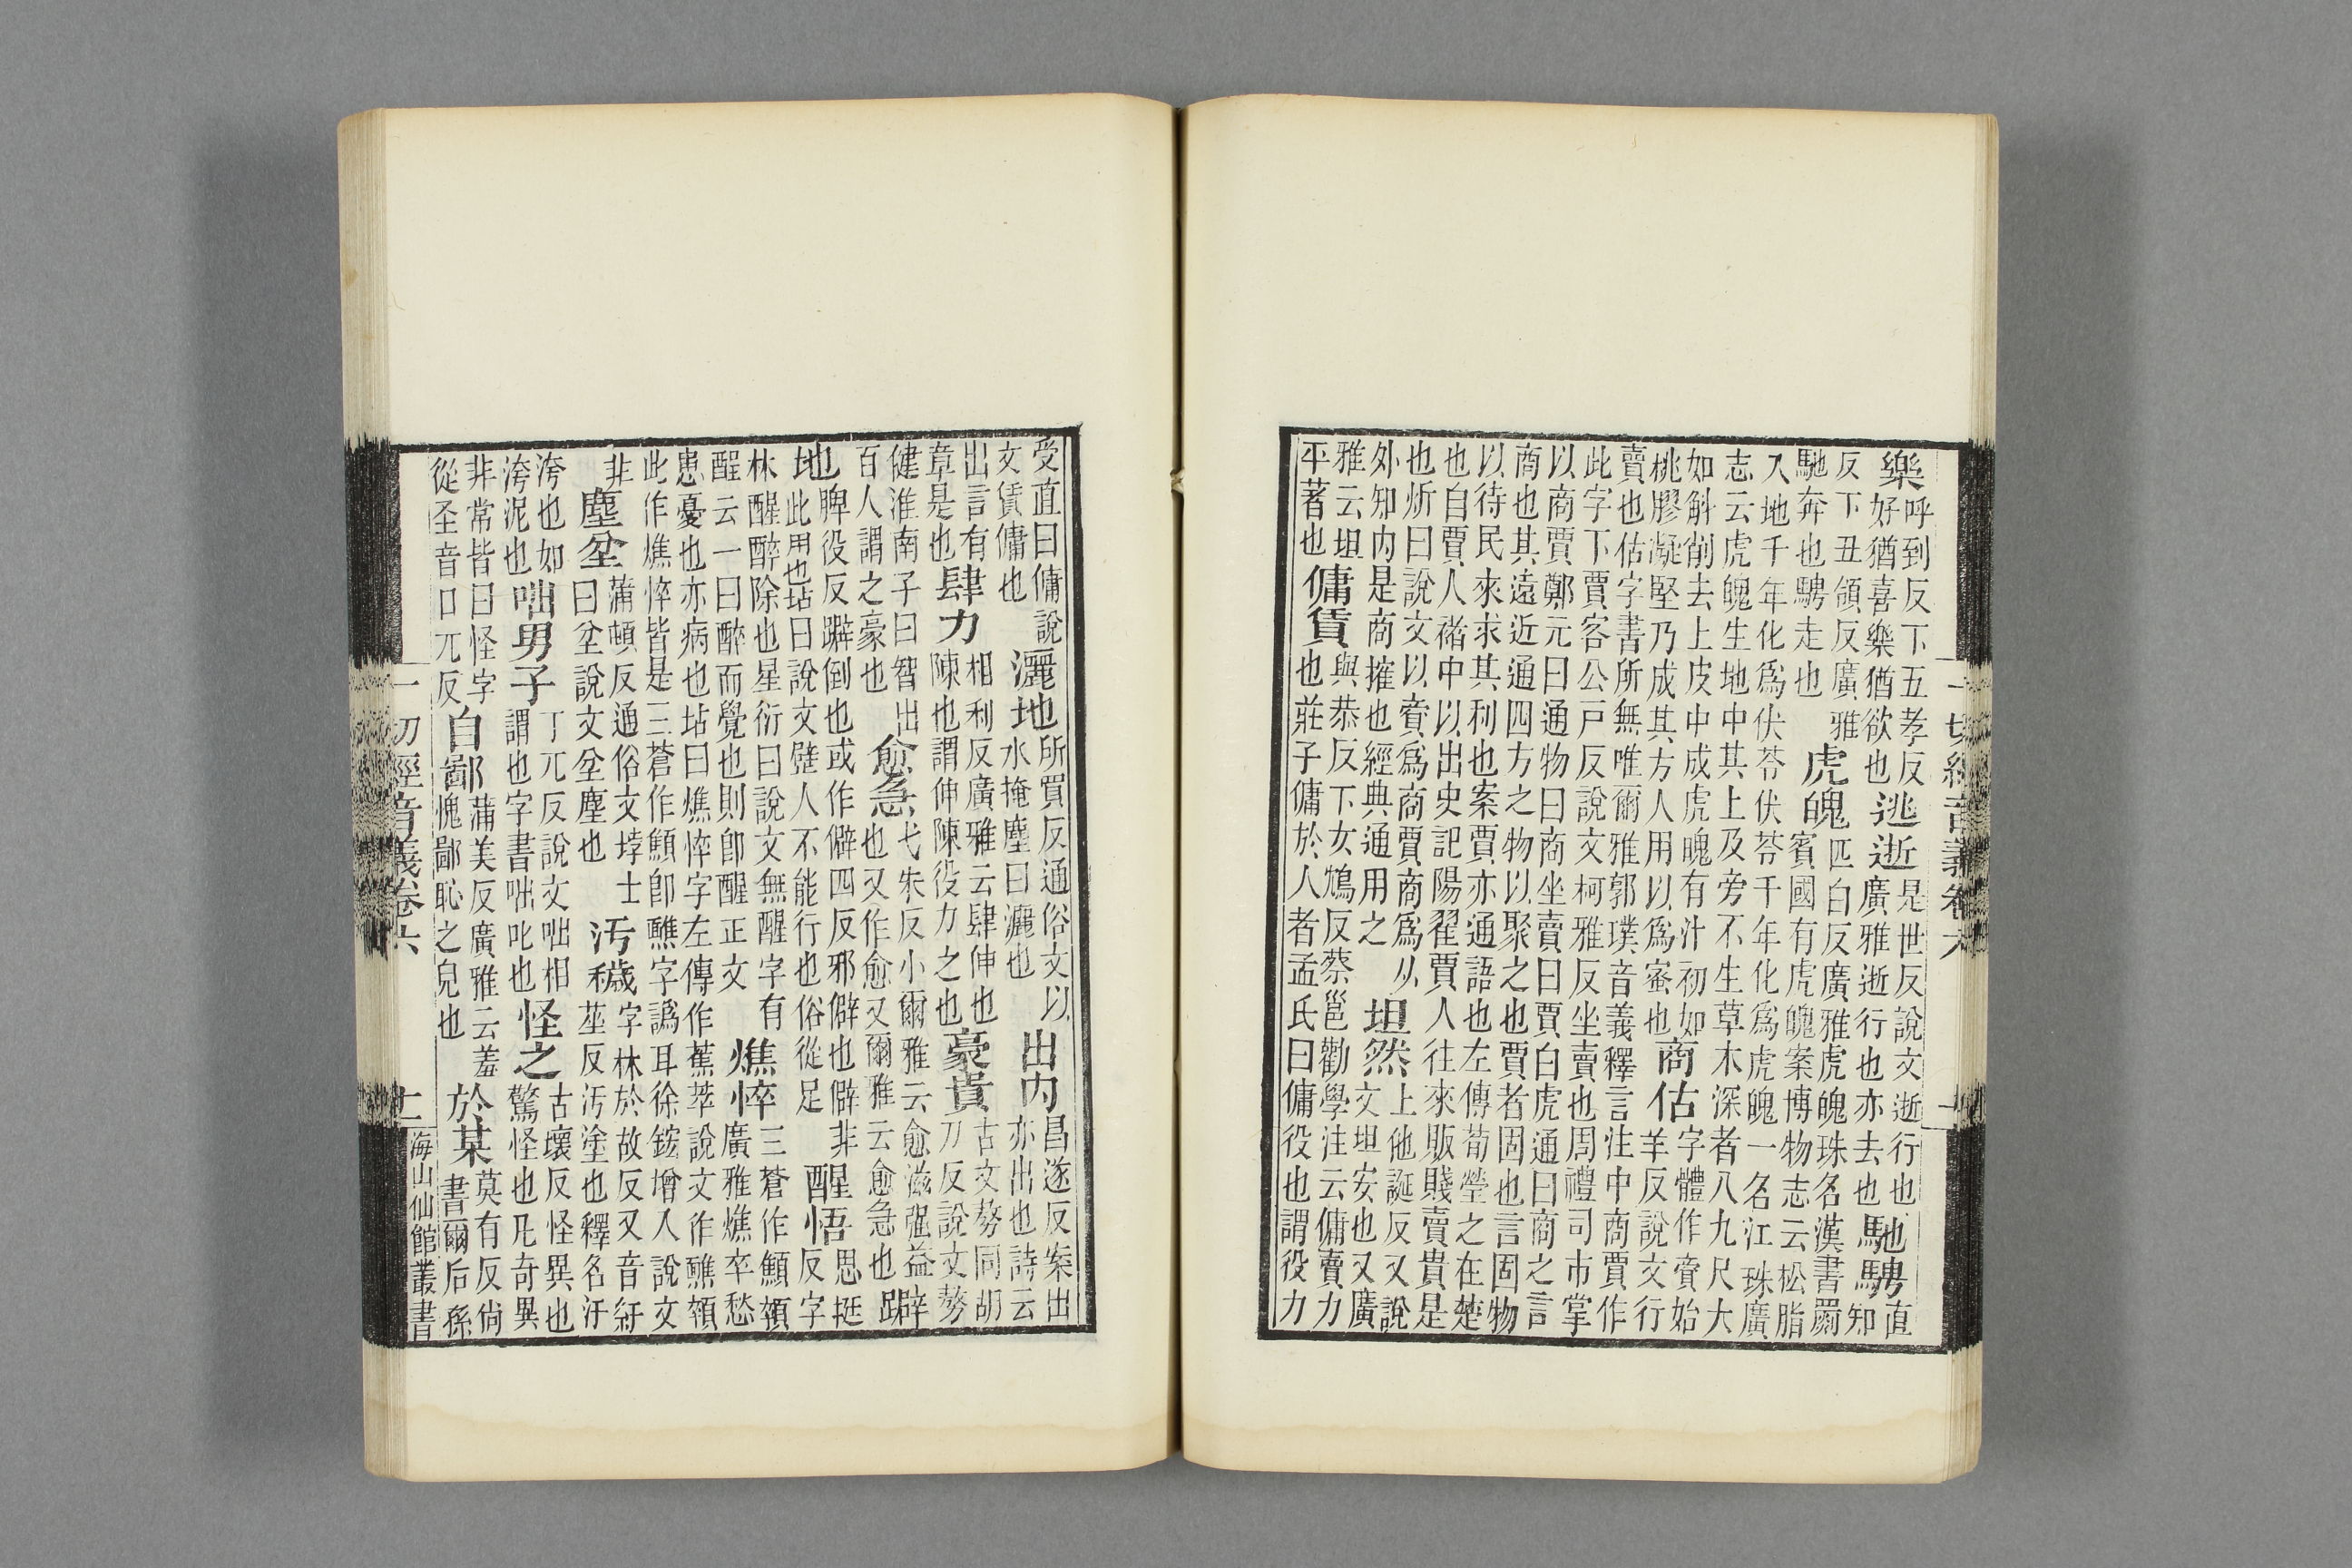 一切經音義卷六
樂呼到反下五孝反好猶喜樂猶欲也逃逝是世反說文逝行也廣雅逝行也亦去也馳騁直知
反下丑領反廣雅馳奔也騁走也虎魄匹白反廣雅虎魄珠名漢書罽賓國有虎魄案博物志云松脂
入地千年化爲伏苓伏苓千年化爲虎魄一名江珠廣志云虎魄生地中其上及旁不生草木深者八九尺大
如斛削去上皮中成虎魄有汁初如桃膠凝堅乃成其方人用以爲窑也商估字體作𧶜始羊反說文行
賣也估字書所無唯爾雅郭璞音義釋言注中商賈作此字下賈客公戶反說文柯雅反坐賣也周禮司市掌
以商賈鄭元曰通物曰商坐賣曰賈白虎通曰商之言商也其遠近通四方之物以聚之也賈者固也言固物
以待民來求其利也案賈亦通語也左傳荀罃之在楚也自賈人褚中以出史記陽翟賈人往來販賤賣貴是
也炘曰說文以𧶜爲商賈商爲从外知内是商搉也經典通用之坦然上他誕反又說文坦安也又廣
雅云坦平著也傭賃與恭反下女鴆反蔡邕勸學注云傭賣力也莊子傭於人者孟氏曰傭役也謂役力
受直曰傭說文賃傭也灑地所買反通俗文以水掩塵曰灑也出内昌遂反案出亦出也詩云
出言有章是也肆力相利反廣雅云肆伸也陳也謂伸陳役力之也豪貴古文勢同胡刀反說文勢
健淮南子曰智出百人謂之豪也愈急弋朱反小爾雅云愈滋强益也又作愈又爾雅云愈急也躃
地脾役反躃倒也或作僻四反邪僻也僻非此用也坫曰說文壁人不能行也俗從足醒悟思挺反字
林醒醉除也星衍曰說文無醒字有醒云一曰醉而覺也則卽醒正文燋悴三蒼作顦顇廣雅燋卒愁
患憂也亦病也坫曰燋悴字左傳作蕉萃說文作醮顇此作燋悴皆是三蒼作顦卽醮字譌耳徐鉉增人說文
非塵坌蒲頓反通俗文㙛土曰坌說文坌塵也汚穢字林於故反又音紆莝反汚塗也釋名汙
洿也如洿泥也咄男子丁兀反說文咄相謂也字書咄叱也怪之古壞反怪異也驚怪也凡奇異
非常皆曰怪字從圣音口兀反自鄙蒲美反廣雅云羞愧鄙恥之皃也於某莫有反尙書爾后孫
一切經音義卷六
十一
海山仙館叢書